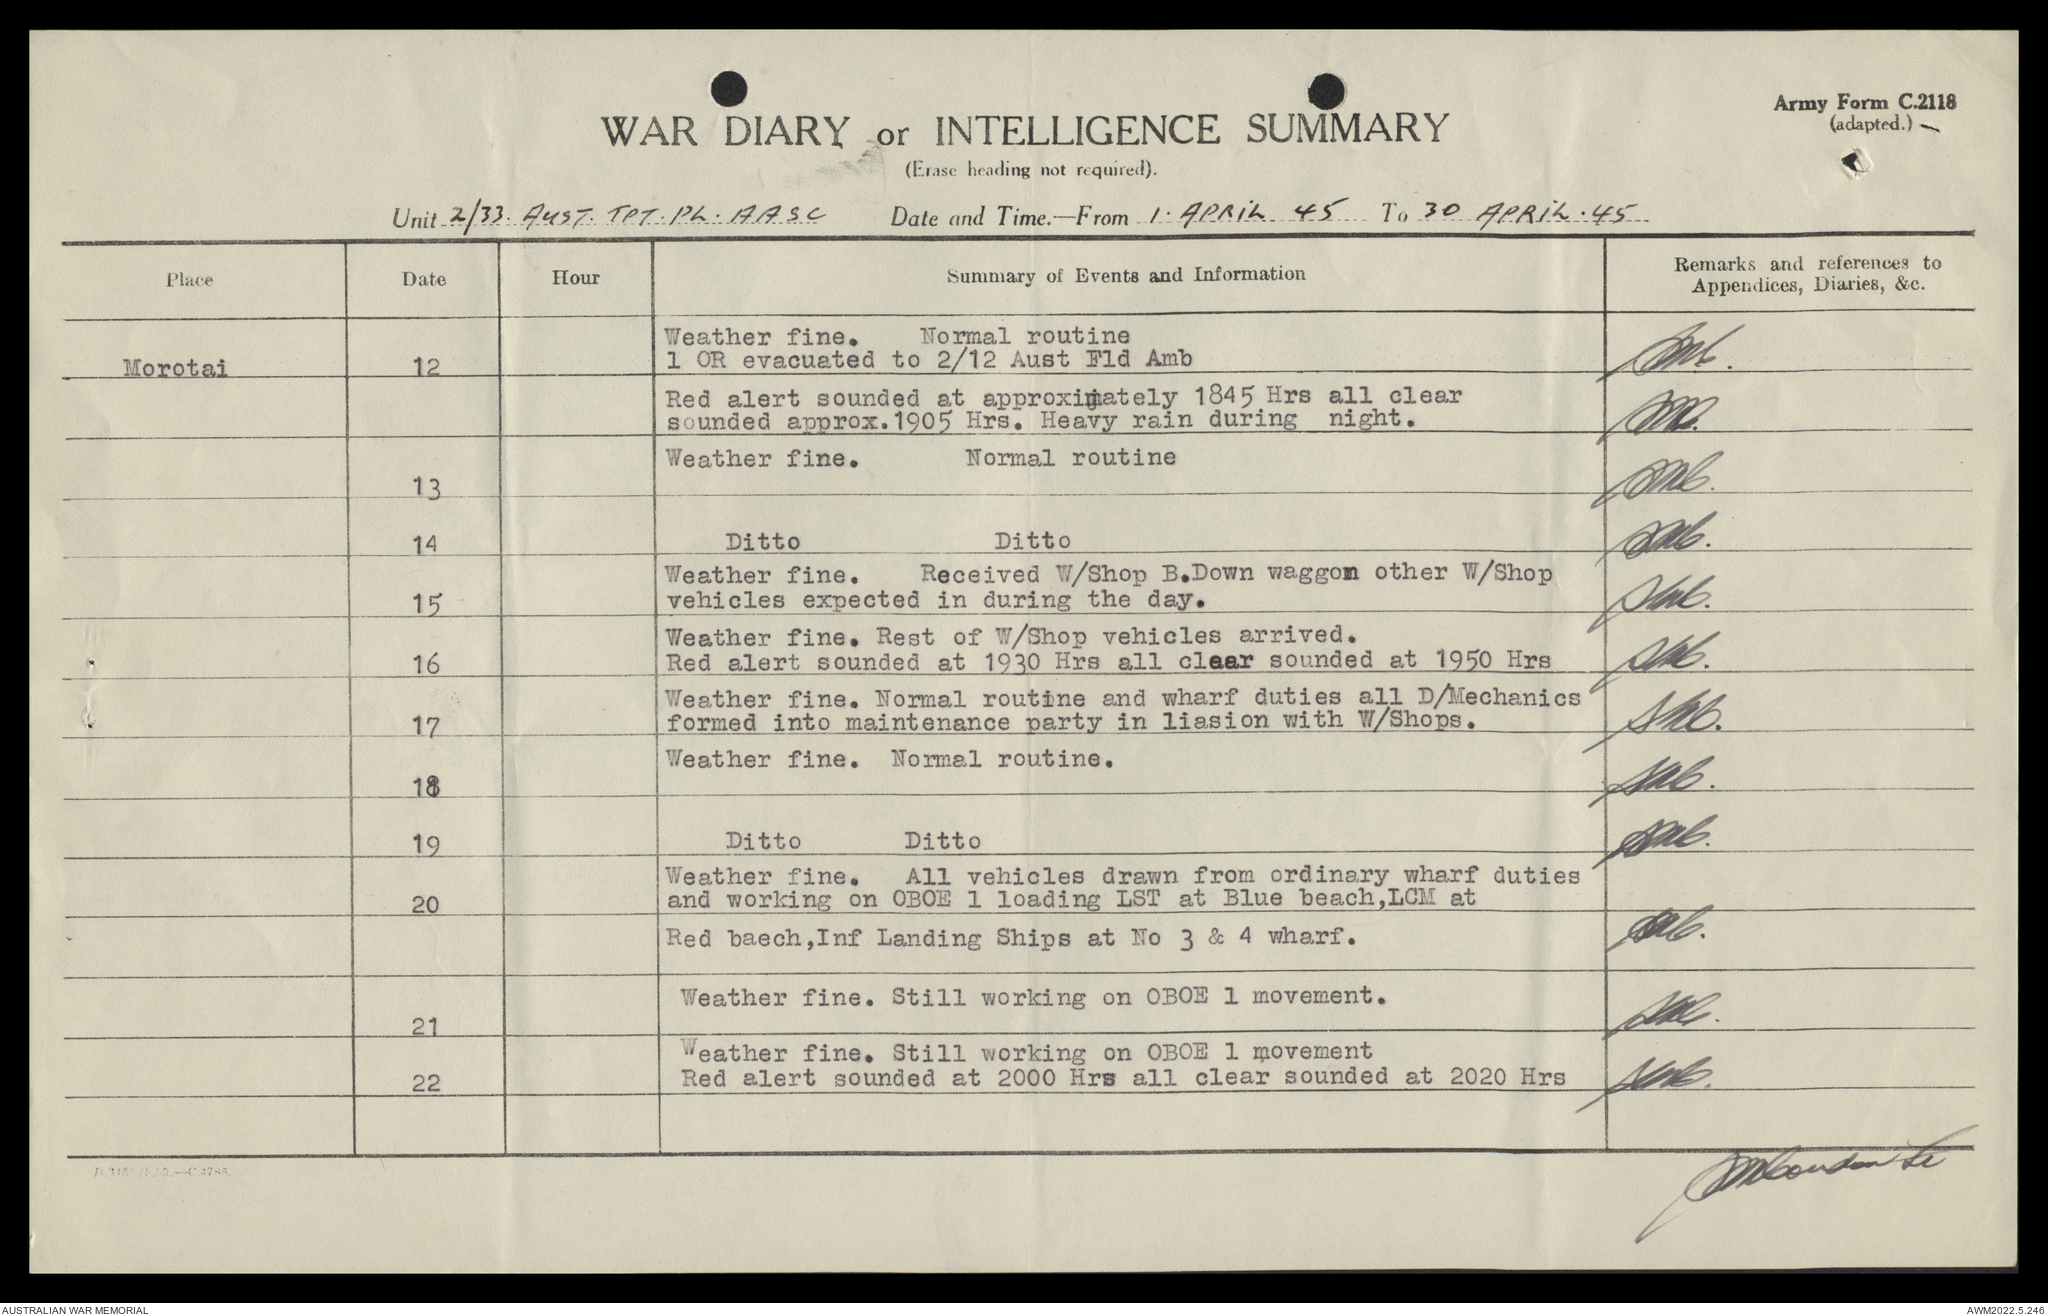 Army Form C.2118
(adapted.)
WAR DIARY or INTELLIGENCE SUMMARY
(Erase heading not required).
Unit 2/33. AUST. TPT. PL. AASC Date and Time.—From 1. APRIL 45 To 30 APRIL. 45
Place Date Hour Summary of Events and Information Remarks and references to
Appendices, Diaries, &c.
Weather fine. Normal routine
Morotai 12 1 OR evacuated to 2/12 Aust Fld Amb
Red alert sounded at approximately 1845 Hrs all clear
sounded approx.1905 Hrs. Heavy rain during night.
Weather fine. Normal routine
13
14 Ditto Ditto
Weather fine. Received W/Shop B.Down waggon other W/Shop
15 vehicles expected in during the day.
Weather fine. Rest of W/Shop vehicles arrived.
16 Red alert sounded at 1930 Hrs all clear sounded at 1950 Hrs
Weather fine. Normal routine and wharf duties all D/Mechanics
17 formed into maintenance party in liasion with W/Shops.
Weather fine. Normal routine.
18
19 Ditto Ditto
Weather fine. All vehicles drawn from ordinary wharf duties
20 and working on OBOE 1 loading LST at Blue beach,LCM at
Red baech,Inf Landing Ships at No 3 & 4 wharf.
Weather fine. Still working on OBOE 1 movement.
21
Weather fine. Still working on OBOE 1 movement
22 Red alert sounded at 2000 Hrs all clear sounded at 2020 Hrs
AUSTRALIAN WAR MEMORIAL
AWM2022.5.246